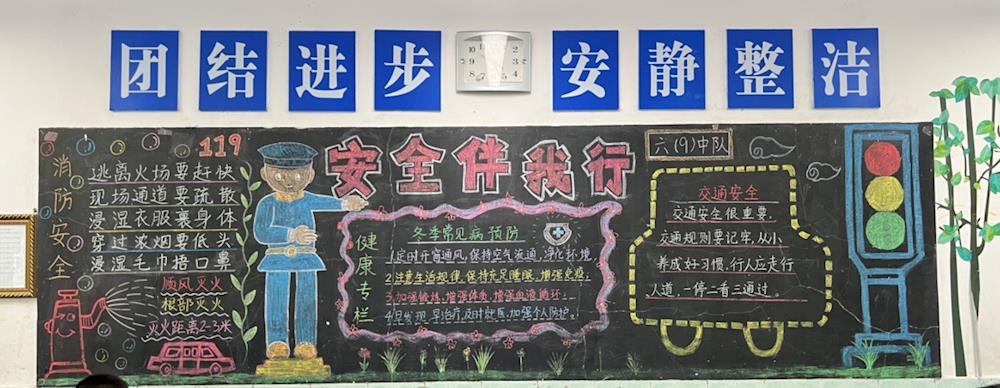 团结进步 安静整洁
消防安全
119
逃离火场要赶快
现场通道要疏散
浸湿衣服裹身体
穿过浓烟要低头
浸湿毛巾捂口鼻
顺风灭火
根部灭火
灭火距离2-3米
安全伴我行
健康专栏
冬季常见病预防
1.定时开窗通风,保持空气流通,净化环境.
2.注意生活规律,保持充足睡眠,增强免疫.
3.加强锻炼,增强体质,增强血液循环.
4.早发现,早治疗,及时就医,加强个人防护。
六(9)中队
交通安全
交通安全很重要,
交通规则要记牢,从小
养成好习惯.行人应走行
人道,一停二看三通过.